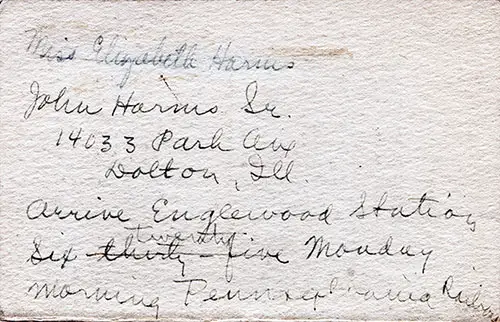 Miss Elizabeth Harms
John Harms Sr.
14033 Park Ave
Dolton, Ill.
Arrive Englewood Station
twenty
Six thirty-five Monday
morning Pennsylvania